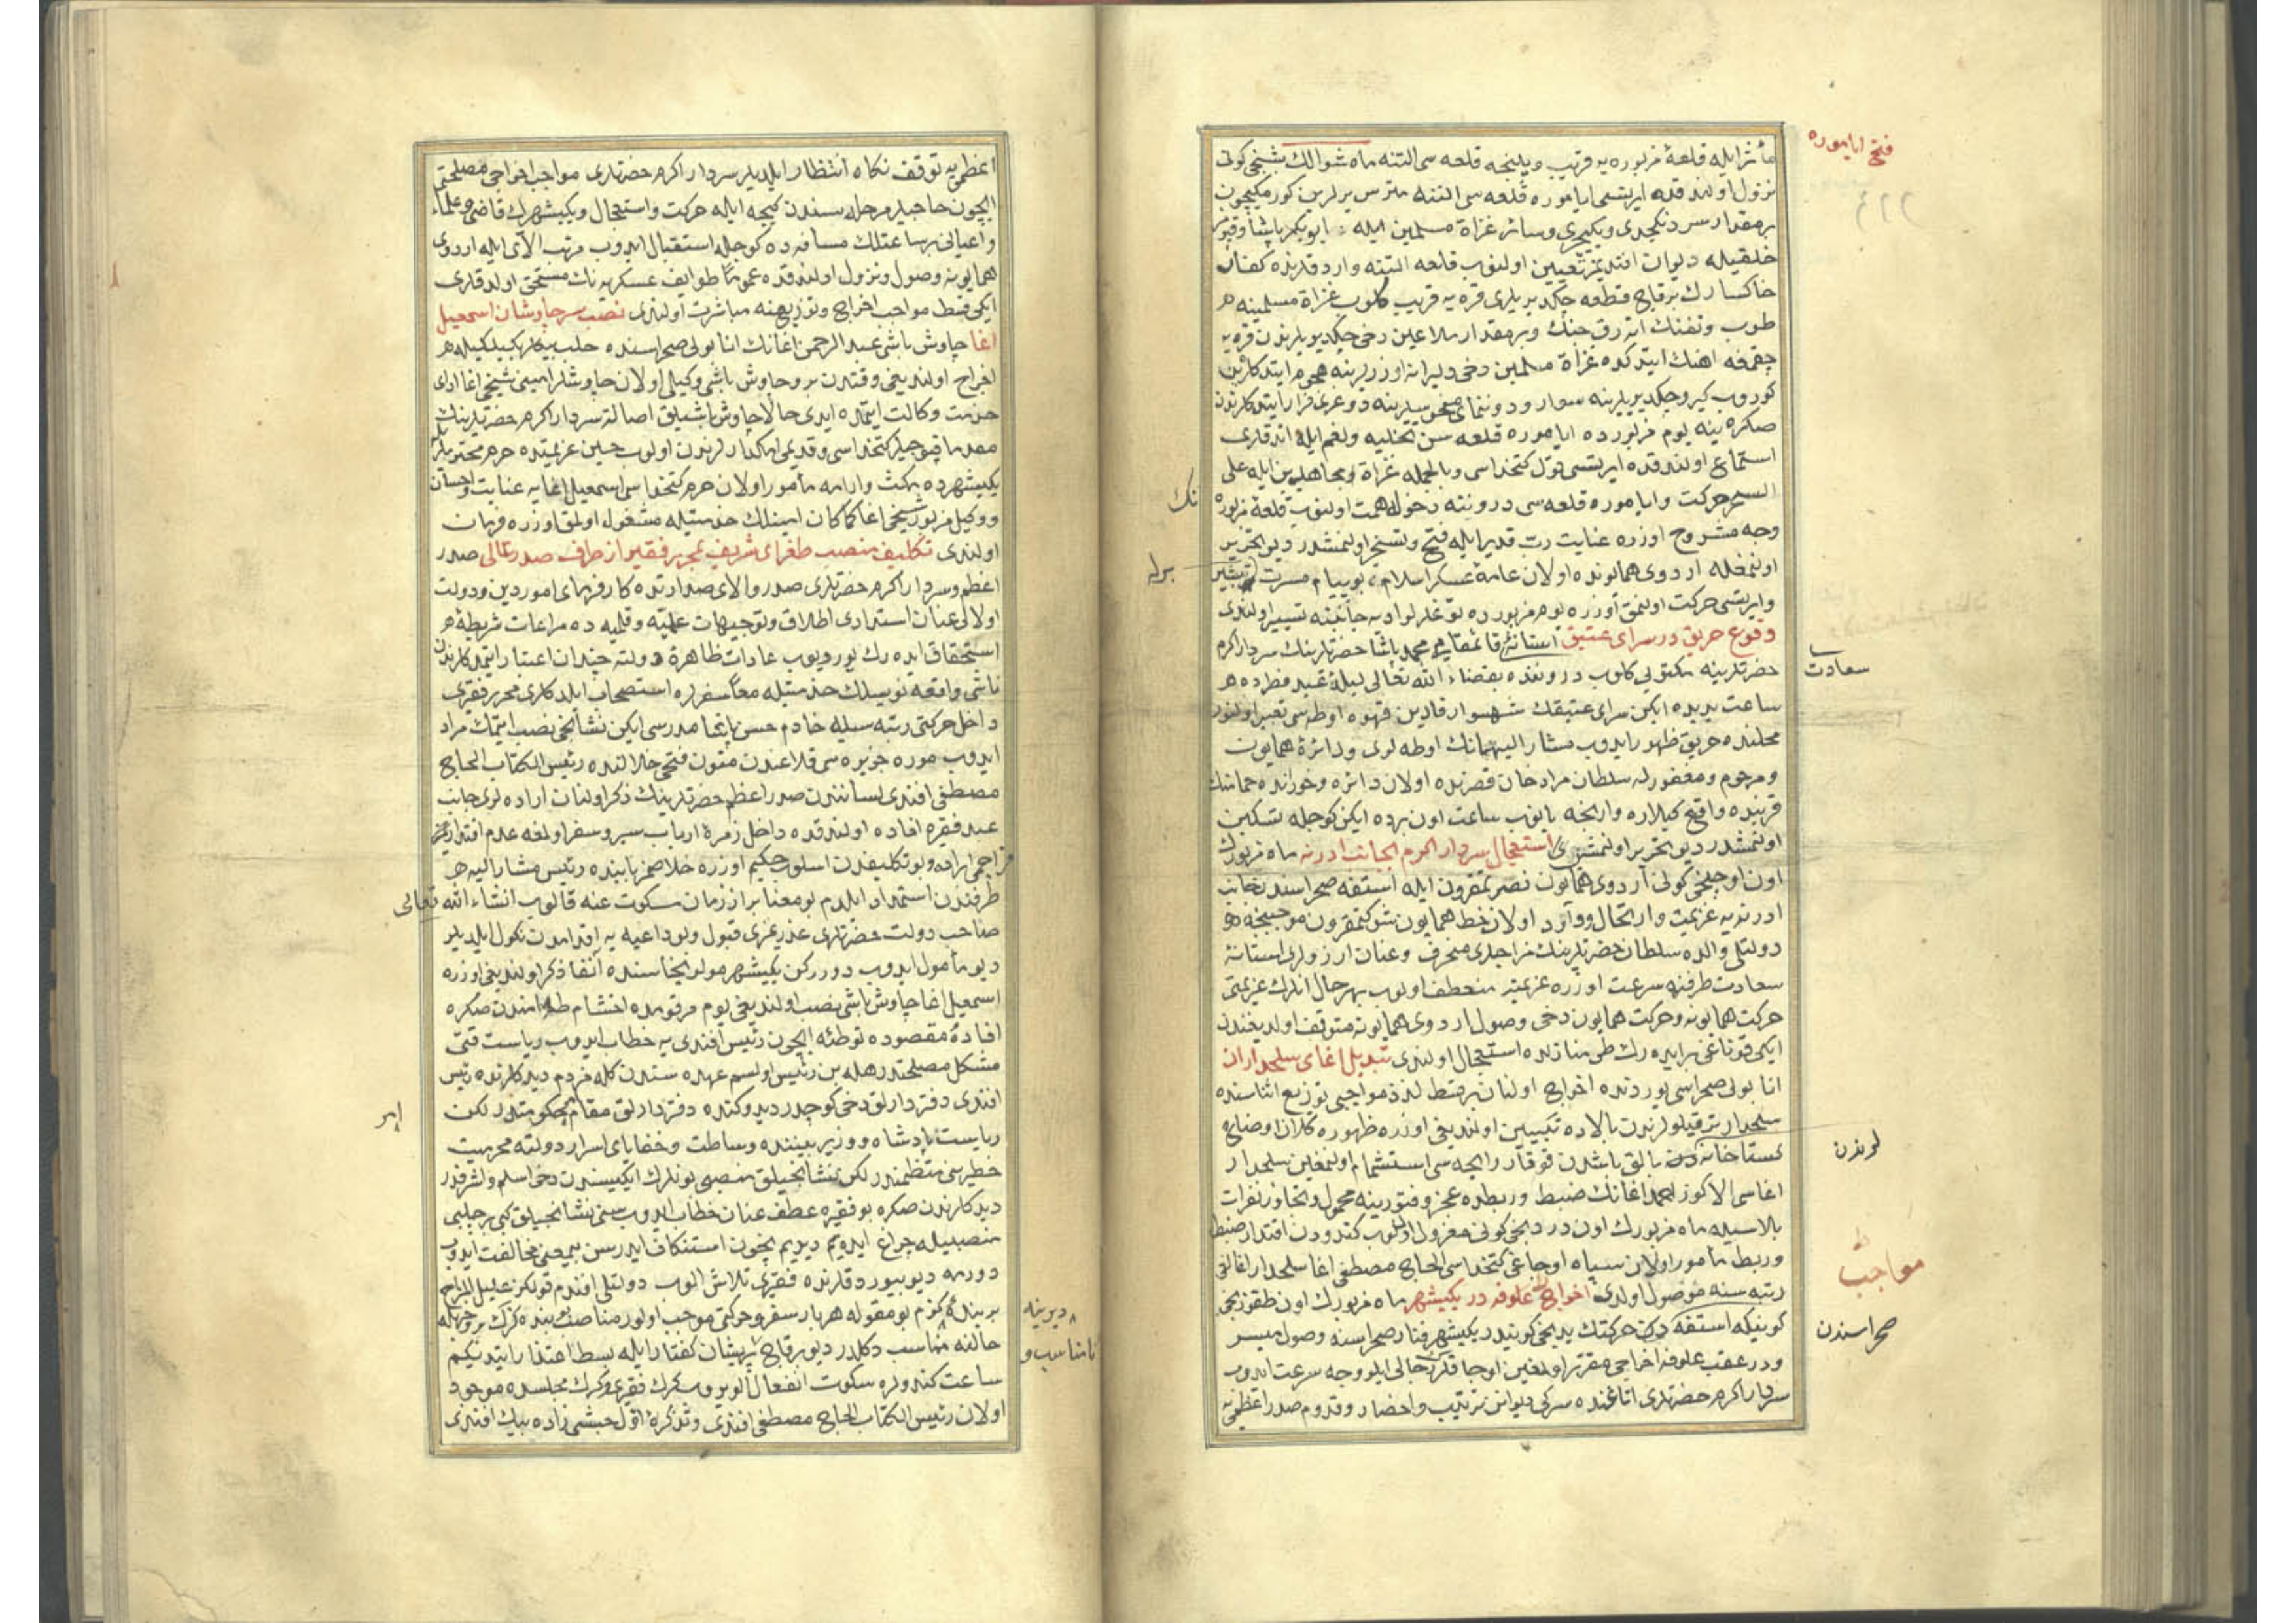 فتح ایاموره
٤٢٢
مأثر ایله قلعهٔ مزبوره یه قریب ویلنجه قلعه سی التنه ماه شوالك بشنجی كونی
نزول اولندقده ایرتسی ایاموره قلعه سی التنه متریس یرلرین كورمكیچون
برمقدار سردنكچدی ویكیچری وسائر غزاة مسلمین ایله ابوبكر پاشا وقپو
خلقیله دیوان افندیمز تعیین اولنوب قلعه التنه واردقلرنده كفار
خاكسارك برقاچ قطعه چكدیریلری قره یه قریب كلوب غزاة مسلمینه
طوب وتفنك ایله رق جنك وبرمقدار ملاعین دخی چكدیریلرندن قره یه
چقمغه اهنك ایتدكده غزاة مسلمین دخی دلیرانه اوزرلرینه هجوم ایتدكلرین
كوروب كیرو چكدیریلرینه سوار ودوننمای منحوسلرینه دوغری فرار ایتدكلرندن
صكره ینه یوم مزبورده ایاموره قلعه سن تخلیه ولغم ایله اتدقلری
استماع اولندقده ایرتسی قول كتخداسی وبالجمله غزاة ومجاهدین ایله علی
السحر حركت وایاموره قلعه سی درونته دخوله همت اولنوب قلعهٔ مزبوره
وجه مشروح اوزره عنایت رب قدیر ایله فتح وتسخیر اولنمشدر دیو تحریر
اولنمغله اردوی همایونده اولان عامهٔ عسكر اسلام بو پیام مسرت تبشیر
وایرتسی حركت اولنمق اوزره یوم مزبورده توغلر لوادیه جانبنه تسییر اولندی
وقوع حریق در سرای عتیق استانه قائمقامی محمد پاشا حضرتلرینك سردار اكرم
حضرتلرینه مكتوبی كلوب دروننده بقضاء الله تعالی لیلهٔ عید فطرده
ساعت یدیده ایكن سرای عتیقك شهسوار قادین قهوه اوطه سی تعبیر اولنور
محلنده حریق ظهور ایدوب مشار الیهانك اوطه لری ودائرهٔ همایون
ومرحوم ومغفورله سلطان مراد خان قصرنده اولان دائره وخزانده حمامنك
قربنده واقع كیلاره وارنجه یانوب ساعت اون برده ایكن كوجله تسكین
اولنمشدر دیو تحریر اولنمش استعجال سردار اكرم بجانب ادرنه ماه مزبورك
اون اوچنجی كونی اردوی همایون نصرتمقرون ایله استفه صحراسندن جانب
ادرنه یه عزیمت وارتحال ووارد اولان خط همایون شوكتمقرون موجبنجه
دولتلی والده سلطان حضرتلرینك مزاجلری منحرف وعنان ارزولری استانهٔ
سعادت طرفنه سرعت اوزره عزیمته منعطف اولوب بهرحال انلرك عزیمتی
حركت همایونه وحركت همایون دخی وصول اردوی همایونه متوقف اولدیغندن
ایكی قوناغی بر ایدرك طی منازلده استعجال اولندی تبدیل اغای سلحداران
انابولی صحراسی یوردنده اخراج اولنان بر قسط لذذ مواجبی توزیع اثناسنده
سلحدار نرقیلولرندن بالاده تبیین اولندیغی اوزره ظهوره كلان اوضاع
كستاخانه دن بالق باشدن قوقار رایحه سی استشمام اولنمغین سلحدار
اغاسی الاكوز احمد اغانك ضبط وربطده عجز وفتورینه محمول وتجاوز نفرات
بالاسیله ماه مزبورك اون دردنجی كونی معزول اولوب كندودن اقتدار ضبط
وربط مأمور اولان سپاه اوجاغی كتخداسی الحاج مصطفی اغا سلحدار اغالغی
رتبه سنه موصول اولدی اخراج علوفه در یكیشهر ماه مزبورك اون طقوزنجی
كونیكه استفه دن حركتك یدنجی كونیدر یكیشهر فنار صحراسنه وصول میسر
ودرعقب علوفه اخراجی مقرر اولمغین اوجاقلر رجالی ایلرو وجه سرعت ایدوب
سردار اكرم حضرتلری اتاغنده سركی دیوانن ترتیب واحضار وقدوم صدر اعظمی یه
تك
برله
سعادت
لرندن
مواجب
صحراسندن
اعظمی یه توقف نكاه انتظار ایلدیلر سردار اكرم حضرتلری مواجب اخراجی مصلحتی
ایچون حاجیلر مرحله سندن كیجه ایله حركت واستعجال ویكیشهرك قاضی وعلماء
واعیانی بر ساعتلك مسافه ده كوجله استقبال ایدوب مرتب الای ایله اردوی
همایونه وصول ونزول اولندقده عموماً طوایف عسكریه نك مستحق اولدقلری
ایكی قسط مواجب اخراج وتوزیعنه مباشرت اولندی نصب سرچاوشان اسمعیل
اغا چاوش باشی عبد الرحمن اغانك انابولی صحراسنده حلب بیكلربكیلكیله
اخراج اولندیغی وقتدن برو چاوش باشی وكیلی اولان چاوشلر امینی شیخی اغا ادای
خدمت وكالت ایتمكده ایدی حالا چاوش باشیلق اصالة سردار اكرم حضرتلرینك
مقدما قپوجیلر كتخداسی وقدیمی امكدارلرندن اولوب حین عزیمتده حرم محترملریله
یكیشهرده مكث وارامه مأمور اولان حرم كتخداسی اسمعیل اغایه عنایت واحسان
ووكیل مزبور شیخی اغا كماكان امینلك خدمتیله مشغول اولمق اوزره فرمان
اولندی تكلیف منصب طغرای شریف بمحرر فقیر از طرف صدر عالی صدر
اعظم وسردار اكرم حضرتلری صدر والای صدارتده كارفرمای امور دین ودولت
اولالی عنان استعدادی اطلاق وتوجیهات علمیه وقلمیه ده مراعات شریطهٔ
استحقاق ایده رك یوریوب عادات ظاهرهٔ دولته چندان اعتبار ایتمدكلرندن
ناشی واقعه نویسلك خدمتیله معاً سفرلره استصحاب ایلدكلری محرر فقیری
داخل حركتی رتبه سیله خادم حسن پاشا مدرسی ایكن نشانجی نصب ایتمك مراد
ایدوب موره جزیره سی قلاعندن متون فتحی خلالنده رئیس الكتاب الحاج
مصطفی افندی لساننندن صدر اعظم حضرتلرینك ذكر اولنان اراده لری جانب
عبد فقیره افاده اولندقده داخل زمرهٔ ارباب سیر وسفر اولمغه عدم اقتدارمز
طرفندن استمداد ایلدم بو معنا بر از زمان مسكوت عنه قالوب انشاء الله تعالی
صاحب دولت حضرتلری عذرمزی قبول وبو داعیه یه اقدامدن نكول ایلدیلر
دیو مأمول ایدوب دوررکن یكیشهر مولویخانه سنده آنفا ذكر اولندیغی اوزره
اسمعیل اغا چاوش باشی نصب اولندیغی یوم مرقومده اخشام طعامندن صكره
افادهٔ مقصوده توطئه ایچون رئیس افندی یه خطاب ایدوب ریاست قتی
مشكل مصلحتدر هله بن رئیس اولسم عهده سندن كله مزدم دیدكلرنده رئیس
افندی دفتردارلق دخی كوجدر دیدوكنده دفتردارلق مقام حكومتدر لكن
ریاست پادشاه ووزیر بیننده وساطت وخفایای اسرار دولته محرمیت
خطیره سنی متضمندر لكن نشانجیلق منصبی بونلرك ایكیسندن دخی اسلم واشرفدر
دیدكلرندن صكره بو فقیره عطف عنان خطاب ایدوب سنی نشانجیلق كبی بر جلیل
منصبیله چراغ ایدویم دیدیم ایچون استنكاف ایدرسن بیمعنی مخالفت ایدوب
دورمه دیو بیوردقلرنده فقیری تلاش الوب دولتلی افندم قولكز علیل المزاج
بر بندهٔ كمزم بو مقوله هر بار سفر وحركتی موجب اولور مناصب بنده كزك
حالنه مناسب دكلدر دیو برقاچ پریشان كفتار ایله بسط اعتذار ایتدیكیم
ساعت كندولره سكوت انفعال الویروب كرك فقیری وكرك مجلسده موجود
اولان رئیس الكتاب الحاج مصطفی افندی وتذكرهٔ اول حبشی زاده بیك افندی
دیرینه
نامناسب و